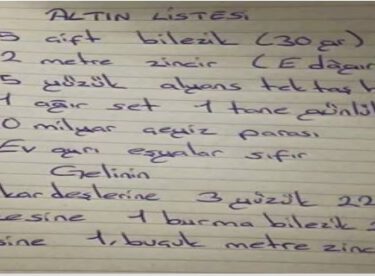 ALTIN LİSTESİ
5 çift bilezik (30 gr)
2 metre zincir (E dağır
5 yüzük alyans tektaş
1 ağır set 1 tane günlük
0 milyar çeyiz parası
Ev auri eşyalar sıfır
Gelinin
kardeşlerine 3 yüzük 22
esine 1 burma bilezik
sine 1, buçuk metre zinc